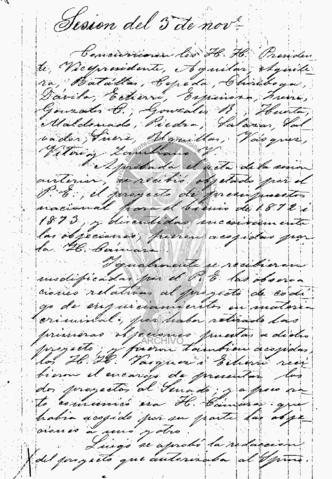 Sesion del 5 de nov.e
Concurrieron los H. H. Presiden-
te, Vicepresidente, Aguilar, Aguirre,
Batallas, Cepeda, Chiriboga,
Dávila, Echeverria, Espinosa,
Gonzalo C., Gonzalez B., Huerta,
Maldonado, Piedra, Salazar, Sal-
vador, Vázquez,
Aprobada el acta de la sesion
anterior, se recibió objetado por el
P. E., el proyecto de presupuestos
nacional para el bienio de 1872 i
1873, y discutidas sucesivamente
las objeciones, fueron acogidas por
la H. Cámara.
Igualmente se recibieron
modificadas por el P. E. las observa-
ciones relativas al proyecto de códi-
go de enjuiciamientos en materia
criminal, retirado las
primeras objeciones puestas a dicho
proyecto; y fueron tambien acogidas.
Los H. H. Vázquez i reci-
bieron el encargo de presentar los
dos proyectos al Senado, y a poco ra-
to comunicó esa H. Cámara que
habia acogido por su parte las obje-
ciones a uno y otro.
Luego se aprobó la redaccion
del proyecto que autorizaba al
ARCHIVO